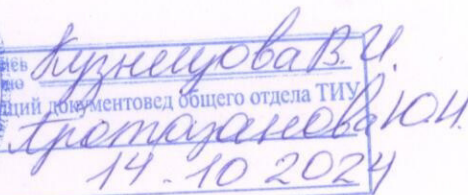 Кузнецова В.И.
щий документовед общего отдела ТИУ
Протазанова Ю.И.
14.10 2024